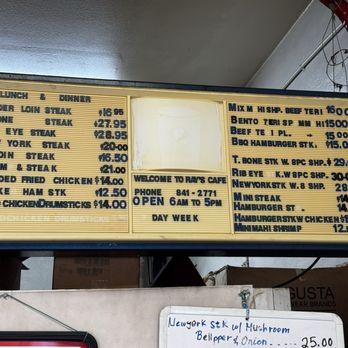 LUNCH & DINNER
DER LOIN STEAK $16.95
ONE STEAK $27.95
EYE STEAK $28.95
YORK STEAK $20.00
OIN STEAK $16.50
M & STEAK $21.00
DED FRIED CHICKEN $14.00
KE HAM STK $12.50
D CHICKEN DRUMSTICKS $14.00
CHICKEN DRUMSTICKS
WELCOME TO RAY'S CAFE
PHONE 841-2771
OPEN 6AM TO 5PM
DAY WEEK
MIX M HI SHP. BEEF TERI 16.00
BENTO TERI SP M HI 15.00
BEEF TE I PL. 15.0
BBQ HAMBURGER STK. $15.0
T. BONE STK W. 8PC SHP. $29.
RIB EYE K.W 8PC SHP. 30.
NEWYORK STK W. 8 SHP. 28
MINI STEAK 14
HAMBURGER ST 14.
HAMBURGER STK W CHICKEN $1
MINI MAHI SHRIMP 12.
GUSTA
Newyork Stk w/ Mushroom
Bellpper & Onion ----- 25.00